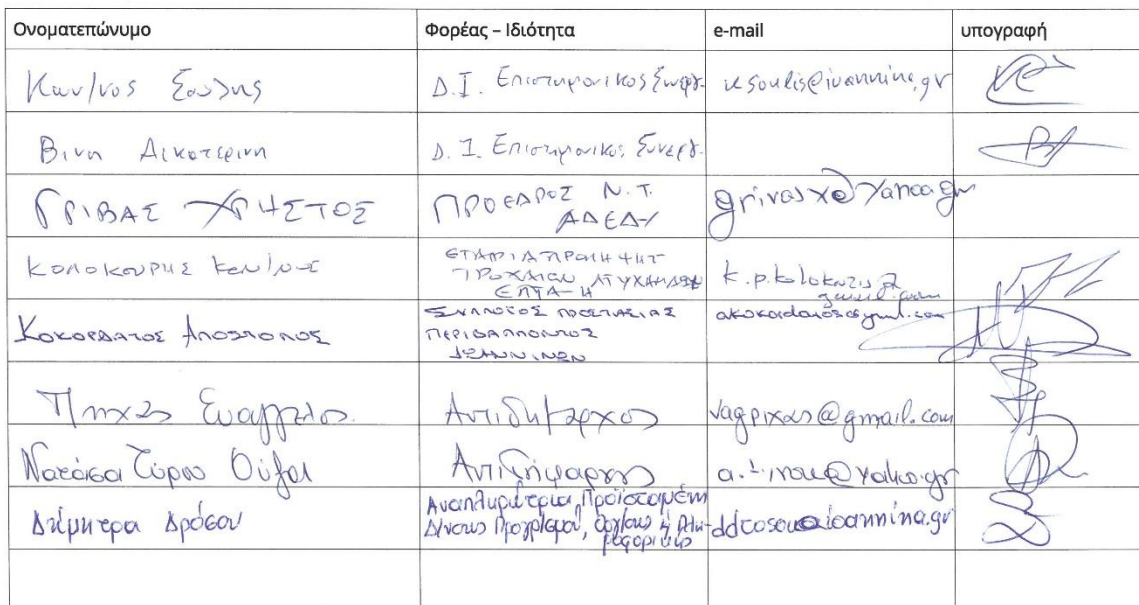 Ονοματεπώνυμο Φορέας – Ιδιότητα e-mail υπογραφή
Κων/νος Σούλης Δ.Ι. Επιστημονικός Συνεργ. ksoulis@ioannina.gr
Βινη Αικατερινη Δ.Ι. Επιστημονικός Συνεργ.
ΓΡΙΒΑΣ ΧΡΗΣΤΟΣ ΠΡΟΕΔΡΟΣ Ν.Τ.
ΑΔΕΔΥ
grivasx@yahoo.gr
ΚΟΛΟΚΟΥΡΗΣ Κων/νος ΕΤΑΙΡΙΑ ΠΡΟΛΗΨΗΣ
ΤΡΟΧΑΙΩΝ ΑΤΥΧΗΜΑΤΩΝ
ΚΟΚΟΡΔΑΤΟΣ ΑΠΟΣΤΟΛΟΣ ΣΥΛΛΟΓΟΣ ΠΡΟΣΤΑΣΙΑΣ
ΠΕΡΙΒΑΛΛΟΝΤΟΣ
ΙΩΑΝΝΙΝΩΝ
Πηχάς Ευάγγελος Αντιδήμαρχος vagpixas@gmail.com
Νατάσα Ζύρπο Ούζοι Αντιδήμαρχος
Δήμητρα Δρόσου Αναπληρώτρια Προϊσταμένη
Δ/νσης Προγρ/σμού, Οργ/σης & Πλη-
ροφορικής
ddrosou@ioannina.gr